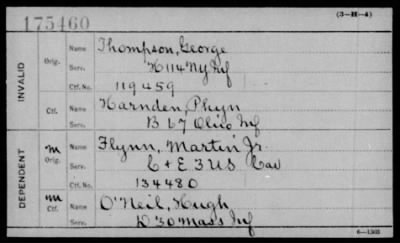 175460 (3—H—4)
INVALID
Orig. Name Thompson, George
Serv. H 114 NY Inf
Ctf. No. 119459
Ctf. Name Harnden, Phyn
Serv. B 67 Ohio Inf
DEPENDENT
m Orig. Name Flynn, Martin Jr.
Serv. C + E 3 US Cav
Ctf. No. 134480
m Ctf. Name O'Neil, Hugh
Serv. D 30 Mass Inf
6—1503